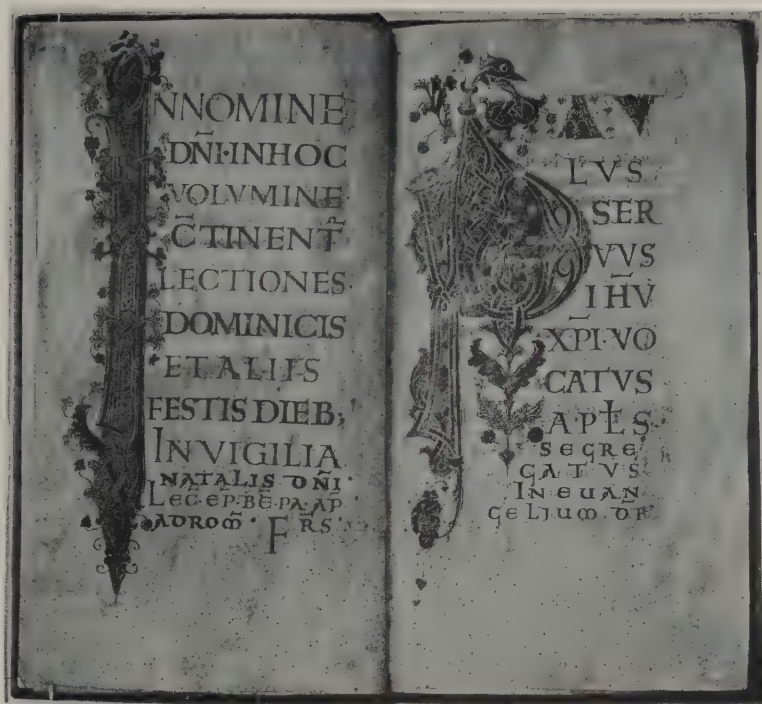 INNOMINE
DÑI·INHOC
VOLVMINE
C̄TINENT̃
LECTIONES·
DOMINICIS
ETALIIS
FESTIS DIEB;
INVIGILIA
NATALIS DÑI·
LEC·EP̄·BĒ·PA·AP̄
ADROM̄· FRS·
PAV
LVS
SER
VVS
IHV̄
XP̄I·VO
CATVS
APL̄S·
SEGRE
GATVS
INEUAN
GELIUM D̄I